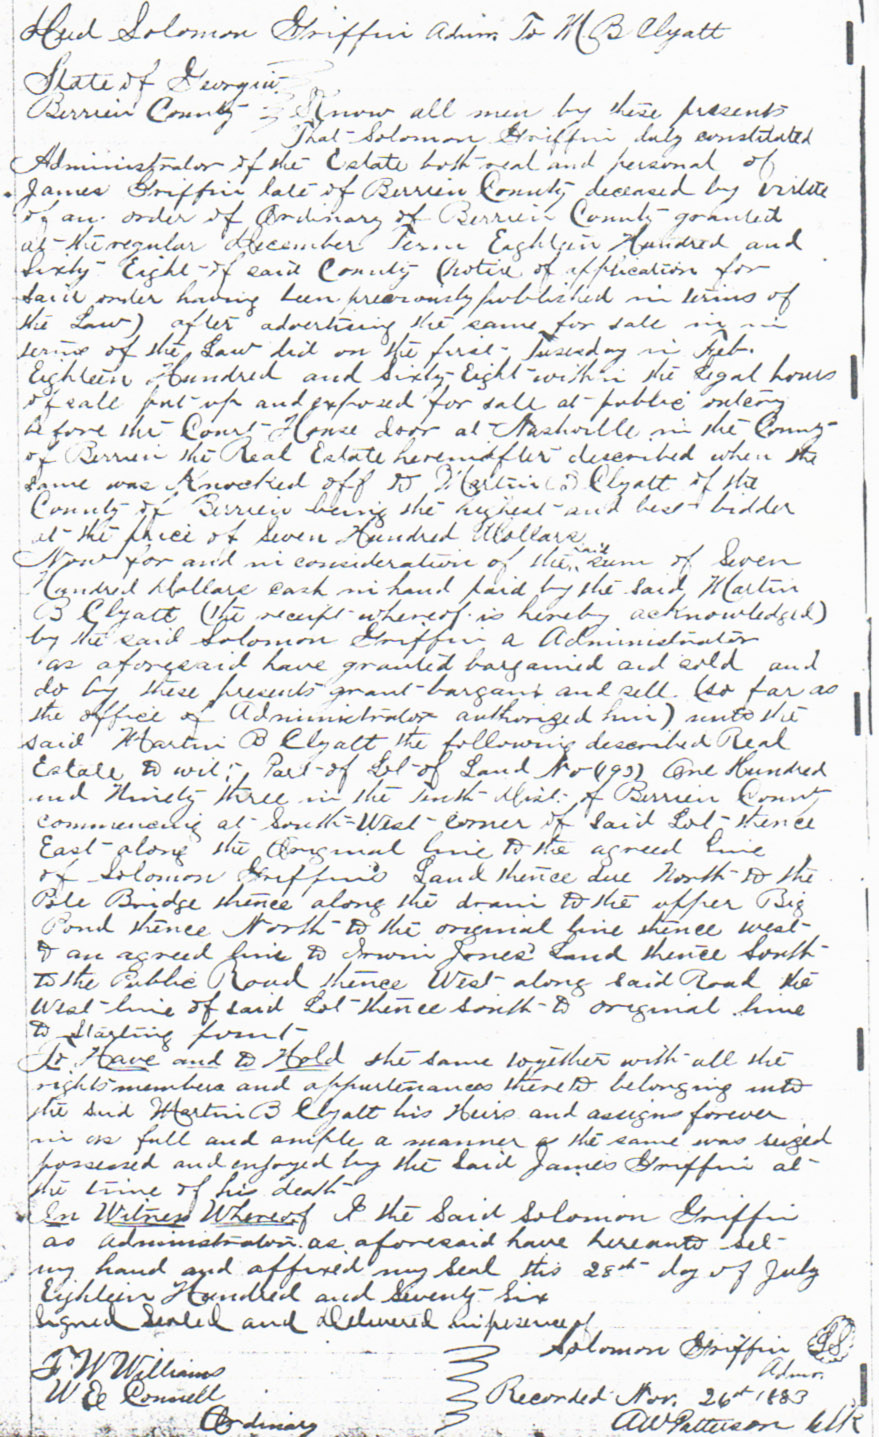 Deed Solomon Griffin Admr. To M B Clyatt
State of Georgia
Berrien County Know all men by these presents
That Solomon Griffin duly constituted
Administrator of the Estate both real and personal of
James Griffin late of Berrien County deceased by virtue
of an order of Ordinary of Berrien County granted
at the regular December Term Eighteen Hundred and
Sixty Eight of said County (notice of application for
said order having been previously published in terms of
the Law) after advertising the same for sale in
terms of the Law did on the first Tuesday in Feb.
Eighteen Hundred and Sixty Eight within the legal hours
of sale put up and exposed for sale at public outcry
before the Court House door at Nashville in the County
of Berrien the Real Estate hereinafter described when the
same was Knocked off to Martin B Clyatt of the
County of Berrien being the highest and best bidder
at the price of Seven Hundred Dollars
Now for and in consideration of the said sum of Seven
Hundred Dollars cash in hand paid by the said Martin
B Clyatt (the receipt whereof is hereby acknowledged)
by the said Solomon Griffin a Administrator
as aforesaid have granted bargained and sold and
do by these presents grant bargain and sell (so far as
the office of Administrator authorized him) unto the
said Martin B Clyatt the following described Real
Estate to wit: Part of Lot of Land No (193) One Hundred
and Ninety three in the tenth Dist. of Berrien County
commencing at South West corner of said Lot thence
East along the Original line to the agreed line
of Solomon Griffin's Land thence due North to the
Pole Bridge thence along the drain to the upper Big
Pond thence North to the original line thence west
to an agreed line to Irwin Jones' Land thence South
to the Public Road thence West along said Road the
West line of said Lot thence South to original line
to Starting point
To Have and to Hold the same together with all the
rights members and appurtenances thereto belonging unto
the said Martin B Clyatt his Heirs and assigns forever
in as full and ample a manner as the same was seized
possessed and enjoyed by the said James Griffin at
the time of his death
In Witness Whereof I the Said Solomon Griffin
as Administrator as aforesaid have hereunto set
my hand and affixed my Seal this 28th day of July
Eighteen Hundred and Seventy Six
Signed Sealed and Delivered in presence of
Solomon Griffin LS
Admr.
T W Williams
W E Connell
Ordinary
Recorded Nov. 26th 1883
A W Patterson Clk